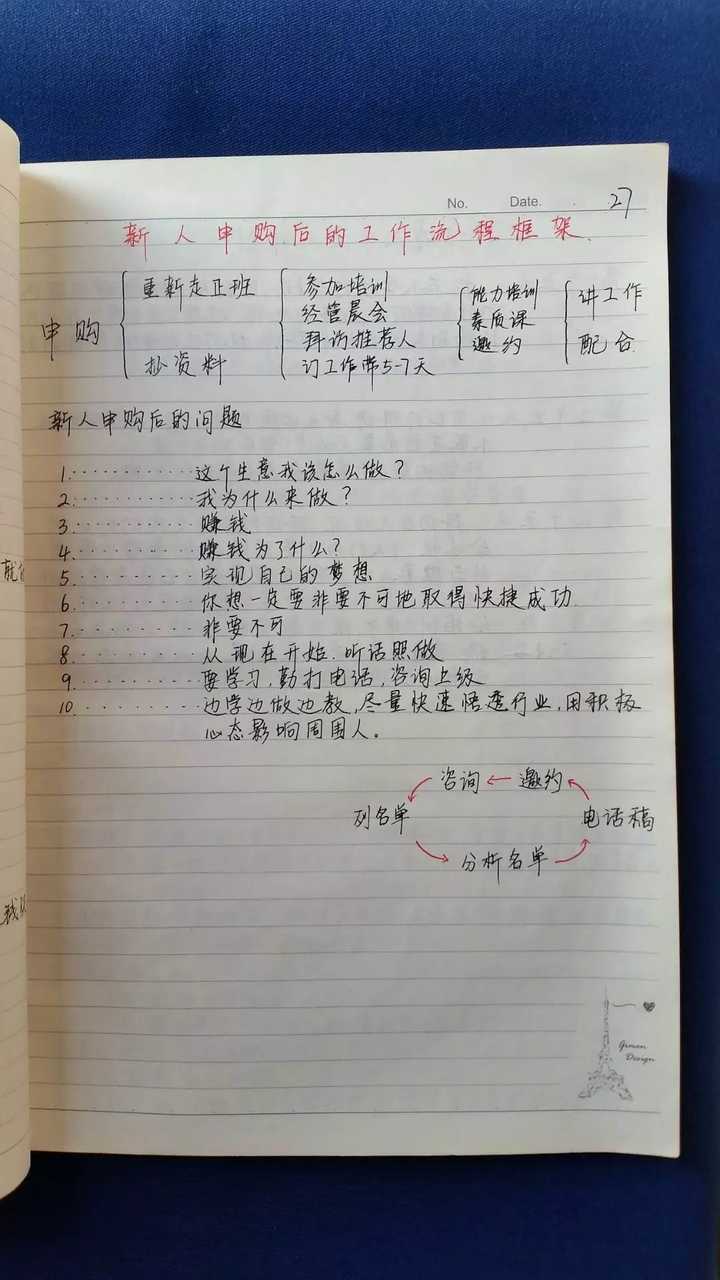 No. Date. 27
新人申购后的工作流程框架.
申购
重新走正班
抄资料
参加培训
经营晨会
拜访推荐人
订工作带5-7天
能力培训
素质课
邀约
讲工作
配合
新人申购后的问题
1.··········这个生意我该怎么做?
2.··········我为什么来做?
3.··········赚钱
4.··········赚钱为了什么?
5.··········实现自己的梦想
6.··········你想一定要非要不可地取得快捷成功.
7.··········非要不可
8.··········从现在开始.听话照做
9.··········要学习,勤打电话,咨询上级
10.··········边学边做边教,尽量快速悟透行业,用积极
心态影响周围人。
咨询 ← 邀约
列名单 电话稿
分析名单
Green
Design